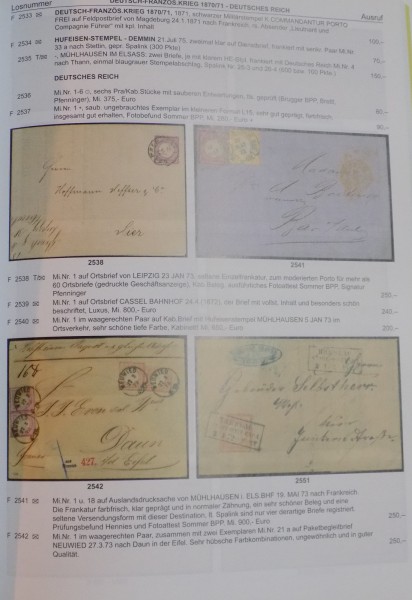 Losnummer DEUTSCH-FRANZÖS.KRIEG 1870/71 - DEUTSCHES REICH Ausruf
F 2533 DEUTSCH-FRANZÖS.KRIEG 1870/71, 1871, schwarzer Mittelstempel K.COMMANDANTUR PORTO
FREI auf Feldpostbrief von Magdeburg 24.1.1871 nach Frankreich, rs. Absender „Lieutnant und
Compagnie Führer" mit kpl. Inhalt 100,-
F 2534 HUFEISEN-STEMPEL - DEMMIN 21 Juli 75, zweimal klar auf Dienstbrief, frankiert mit waager. Paar Mi.Nr.
33 a nach Stettin, gepr. Spalink (300 Pkte) 75,-
2535 T/ - MÜHLHAUSEN IM ELSASS: zwei Briefe, je mit klarem HE-Stpl. frankiert mit Deutsches Reich Mi.Nr. 4
nach Thann, einmal blaugrauer Stempelabschlag, Spalink Nr. 26-3 und 26-4 (650 bzw. 100 Pkte.) 150,-
DEUTSCHES REICH
2536 Mi.Nr. 1-6, sechs Pra/Kab.Stücke mit sauberen Entwertungen, tls. geprüft (Brugger BPP, Brettl,
Pfenninger), Mi. 375,- Euro 60,-
F 2537 Mi.Nr. 1 *, saub. ungebrauchtes Exemplar im kleineren Format L15, sehr gut geprägt, farbfrisch,
insgesamt gut erhalten, Fotobefund Sommer BPP, Mi. 280,- Euro + 80,-
2538 2541
F 2538 T/ Mi.Nr. 1 auf Ortsbrief von LEIPZIG 23 JAN 73, seltene Einzelfrankatur, zum moderierten Porto für mehr als
60 Ortsbriefe (gedruckte Geschäftsanzeige), tras.Beleg, ausführliches Fotoattest Sommer BPP, Signatur
Pfenninger 250,-
F 2539 Mi.Nr. 1 auf Ortsbrief CASSEL BAHNHOF 24.4.(1872), ein Brief mit vollst. Inhalt und besonders schön
beschriftet, Luxus, Mi. 800,- Euro 200,-
F 2540 Mi.Nr. 1 im waagerechten Paar auf Kab.Brief mit Hufeisenstempel MÜHLHAUSEN 5 JAN 73 im
Ortsverkehr, sehr schöne tiefe Farbe, Kabinett! Mi. 650,- Euro 240,-
Daun
427.
2542 2551
F 2541 Mi.Nr. 1 u. 18 auf Auslandsdrucksache von MÜHLHAUSEN i. ELS.BHF 19. MAI 73 nach Frankreich.
Die Frankatur farbfrisch, klar geprägt und in normaler Zähnung, ein sehr schöner Beleg und eine
seltene Versendungsform mit dieser Destination, lt. Spalink sind nur vier derartige Briefe registriert,
Prüfungsbefund Hennies und Fotoattest Sommer BPP, Mi. 900,- Euro 250,-
F 2542 Mi.Nr. 1 im waagerechten Paar, zusammen mit zwei Exemplaren Mi.Nr. 21 a auf Paketbegleitbrief
NEUWIED 27.3.73 nach Daun in der Eifel. Sehr hübsche Farbkombinationen, ungewöhnlich und in guter
Qualität. 250,-